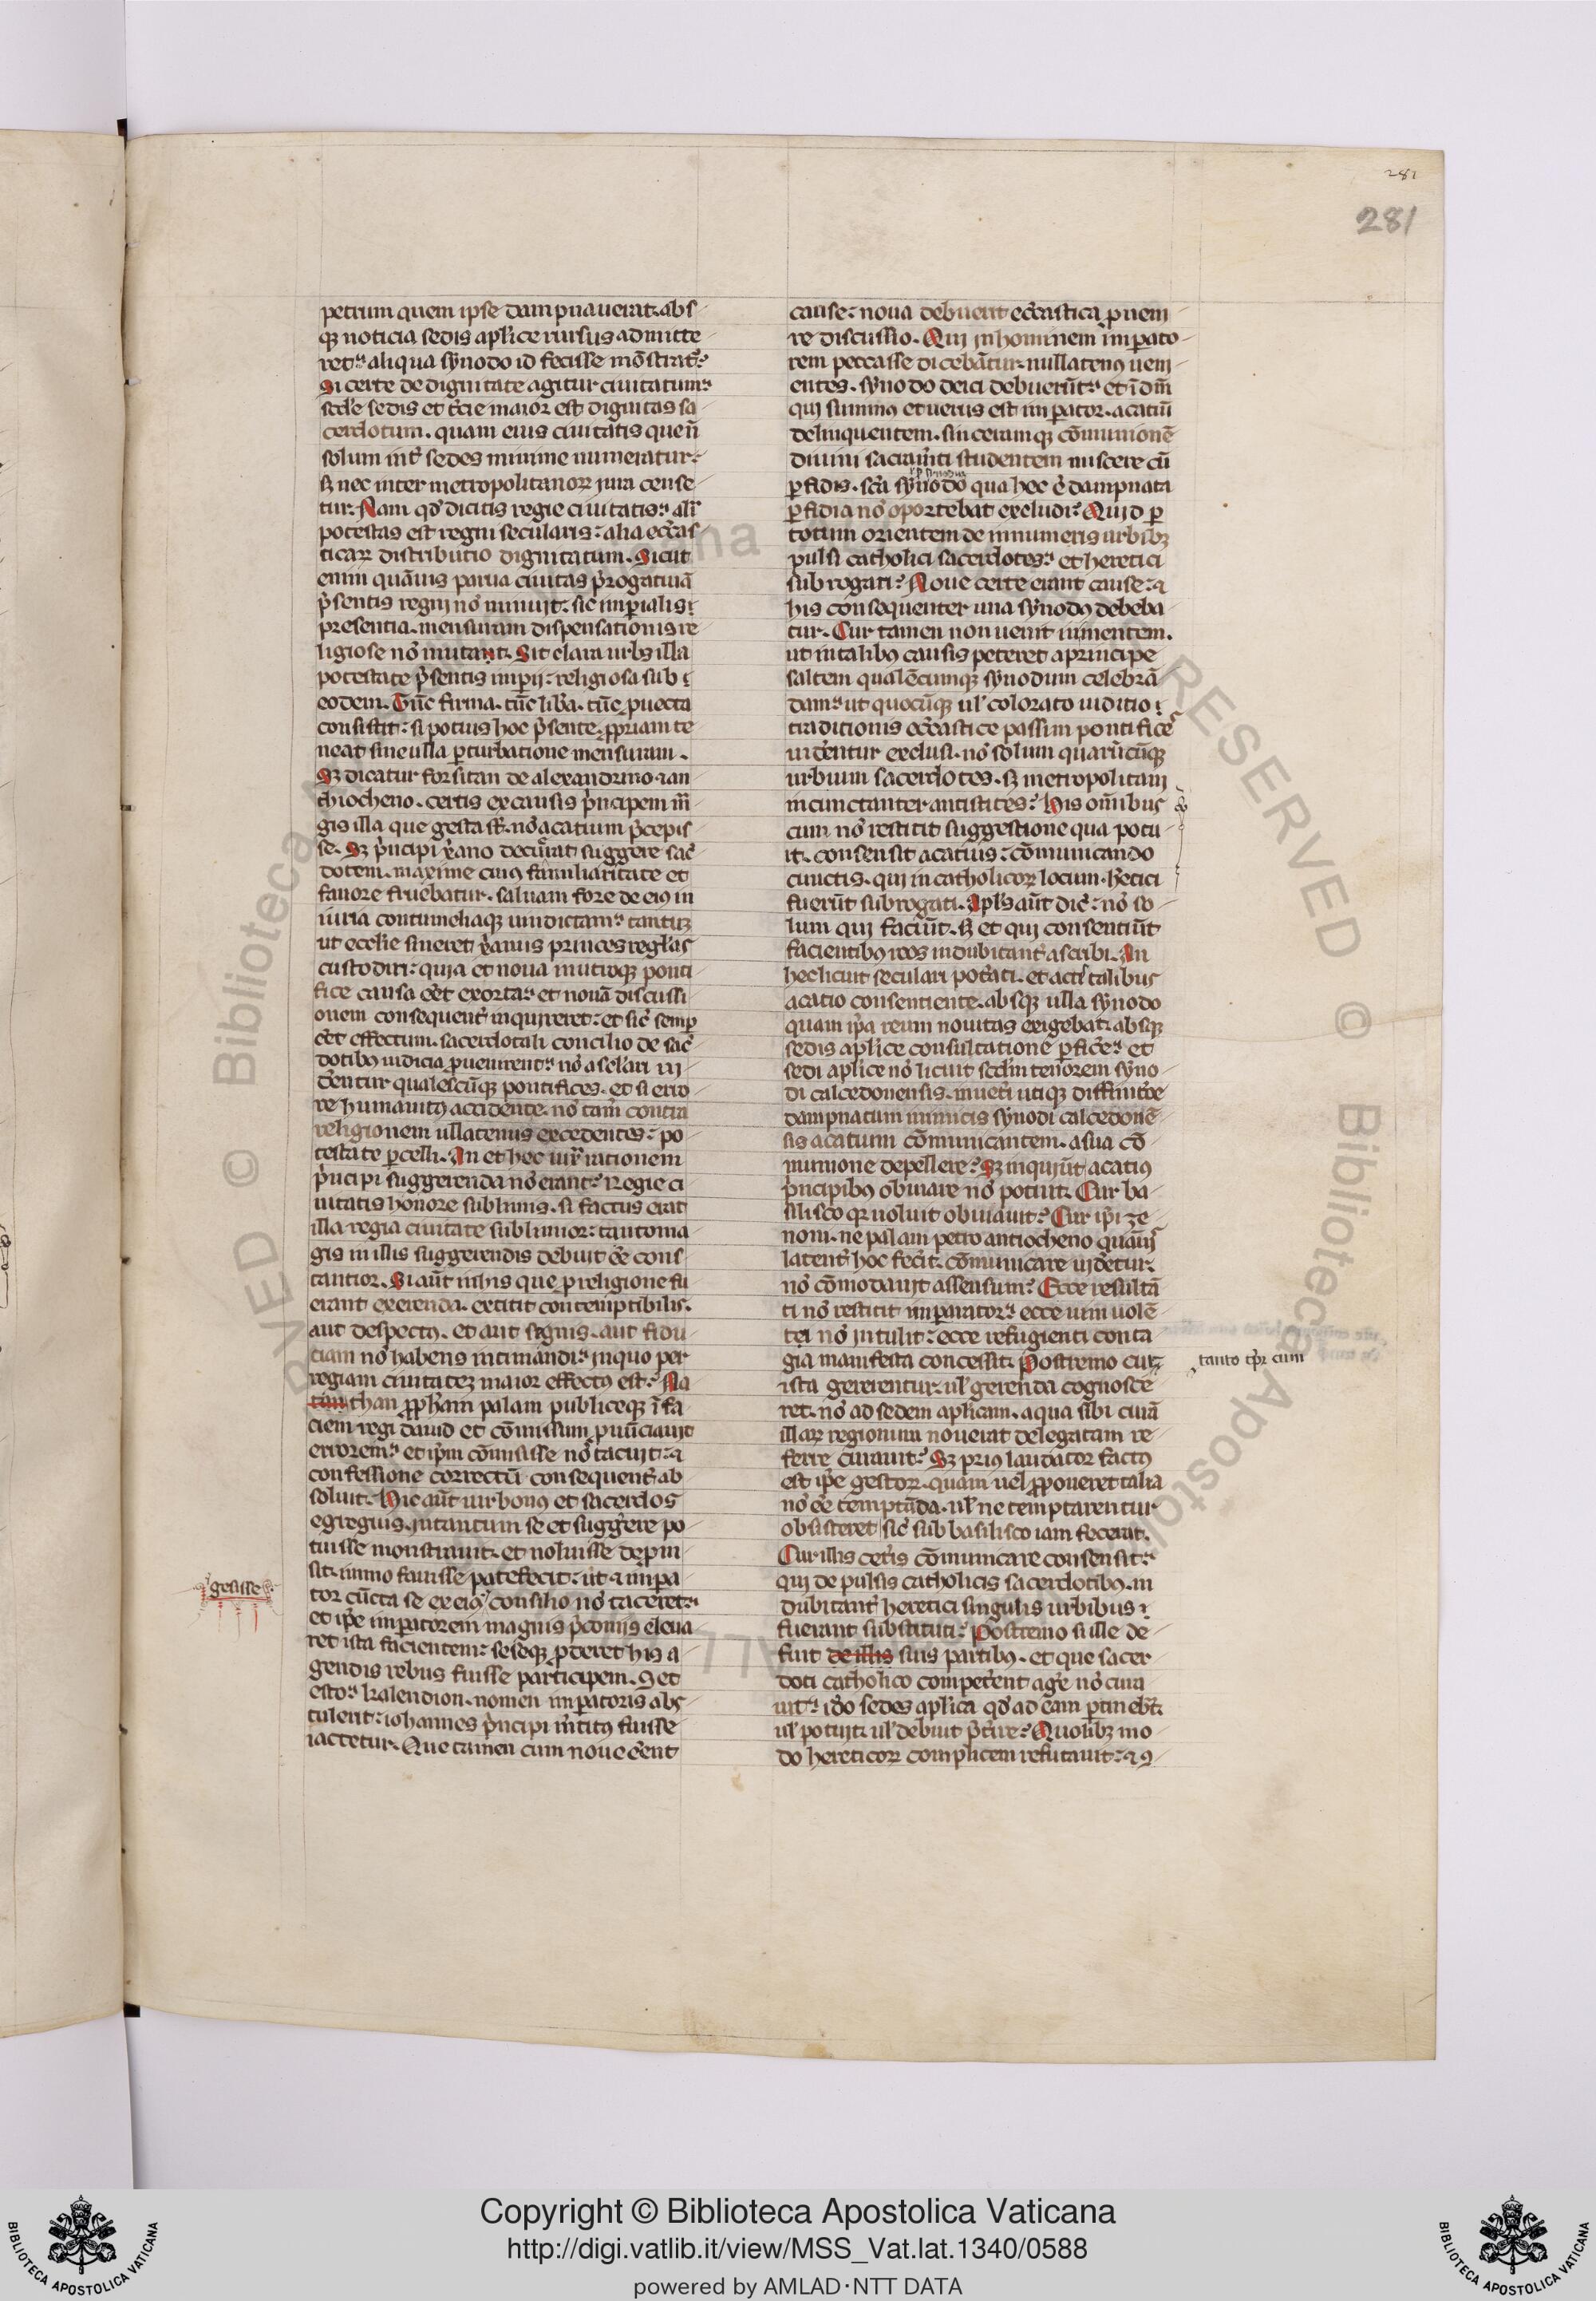 281
281
petrum quem ipse dampnauerat. abs
qꝫ noticia sedis aplice rursus admitte
ret. aliqua synodo id fecisse mōstrat̄.
Si certe de dignitate agitur ciuitatum.
scd̄e sedis et t̄cie maior est dignitas sa
cerdotum. quam eius ciuitatis que n̄
solum int̄ sedes minime numeratur.
sꝫ nec inter metropolitanoꝝ iura cense
tur. Nam qd̄ dicitis regie ciuitatis. alī
potestas est regni secularis. alia eccās
ticaꝝ distributio dignitatum. Sicut
enim quāuis parua ciuitas p̄rogatiuā
p̄sentis regni nō minuit. sic imperialis
presentia. mensuram dispensationis re
ligiose nō mutant. Sit clara urbs illa
potestate p̄sentis imꝑij. religio sa sub
eodem. Tūc firma. tūc lib̄a. tūc ꝓuecta
consistit. si potius hoc p̄sente ꝓpriam te
neat sine ulla ꝑturbatione mensuram.
Sꝫ dicatur forsitan de alexandrino ⁊ an
thiocheno. certis ex causis p̄ncipem m̄
gis illa que gesta st̄. nō acatium p̄cepis
se. Sꝫ p̄ncipi xp̄ano decuerat suggere sac̄
dotem. maxime cuius familiaritate et
fauore fruebatur. saluam fore de eius in
iuria contumeliaqꝫ uindictam. tantūꝫ
ut ecclie sineret xp̄anus princes regl̄as
custodiri. quia et noua in utroqꝫ ponti
fice causa eēt exorta. et nouā discussi
onem consequent̄ inquireret. et sic̄ semꝑ
eēt effectum. sacerdotali concilio de sac̄
dotibꝰ iudicia ꝓuenirent. nō a sclari ui
dentur qualescūqꝫ pontifices. et si erro
re humanitꝰ accidente. nō tam̄ contra
religionem ullatenus excedentes. po
testate ꝑcelli. An et hec iux̄ rationem
p̄ncipi suggerenda nō erant. Regie ci
uitatis honore sublimis. si factus erat
illa regia ciuitate sublimior. tanto ma
gis in illis suggerendis debuit eē cons
tantior. Si aūt in his que ꝓ religione fu
erant exerenda. extitit contemptibilis.
aut despectꝰ. et aut segnis. aut fidu
ciam nō habens intimandi. in quo per
regiam ciuitateꝫ maior effectꝰ est. Na
tan than ꝓpham palam publiceqꝫ ī fa
ciem regi dauid et cōmissum ꝓnūciauit
errorem. et ip̄m cōmisisse nō tacuit. ⁊
confessione correctū consequent̄ ab
soluit. Hic aūt uir bonꝰ et sacerdos
egregius. in tantum se et suggerere po
tuisse monstrauit. et noluisse deꝓm
sit. immo fauisse patefecit. ut ⁊ imꝑa
gesisse
tor cūcta se ex eiꝰ consilio nō taceret.
et ip̄e imꝑatorem magnis p̄conijs eleua
ret ista facientem. seseqꝫ ꝓderet his a
gendis rebus fuisse participem. Ꝫ et
esto. kalendion. nomen imꝑatoris abs
tulerit. iohannes p̄ncipi m̄titꝰ fuisse
iactetur. Que tamen cum noue eēnt
cause. noua debuerit eccāstica ꝓueni
re discussio. Qui in hominem imꝑato
rem peccasse dicebātur. nullatenꝰ ueni
entes. synodo deici debuerūt. et ī dm̄
qui summꝰ et uerus est imꝑator. acatiū
delinquentem. sinceramqꝫ cōmunionē
diuini sacram̄ti studentem miscere cū
ꝑfidis. sc̄a synodo qua hec ē dampnata
ꝑfidia nō oportebat excludi. Quid ꝑ
totum orientem de innumeris urbibꝫ
pulsi catholici sacerdotes. et heretici
subrogati. Noue certe erant cause. ⁊
his consequenter una synodꝰ debeba
tur. Cur tamen non uenit in mentem.
ut in talibꝰ causis peteret a principe
saltem qualēcumqꝫ synodum celebrā
dam. ut quocūqꝫ ul̄ colorato iuditio
traditionis eccāstice passim pontifices
uidentur exclusi. nō solum quarūcūqꝫ
urbium sacerdotes. sꝫ metropolitani
incunctanter antistites. His omībus
cum nō restitit suggestione qua potu
it. consensit acatius. cōmunicando
cunctis. qui in catholicoꝝ locum. h̄etici
fuerūt subrogati. Apl̄s aūt dic̄. nō so
lum qui faciūt. sꝫ et qui consentiūt
facientibꝰ reos indubitant̄ ascribi. An
hec licuit seculari pot̄ati. et acti talibus
acatio consentiente. absqꝫ ulla synodo
quam ip̄a reum nouitas exigebat. absqꝫ
sedis aplice consultatione ꝑfice. et
sedi aplice nō licuit scd̄m tenorem syno
di calcedonensis. inueti utiqꝫ diffinitōe
dampnatum inimicis synodi calcedonē
sis acatium cōmunicantem. a sua cō
munione depellere. Sꝫ inquiūt acatiꝰ
p̄ncipibꝰ obuiare nō potuit. Cur ba
silisco qꝛ uoluit obuiauit. Cur ip̄i ze
noni. ne palam petro antiocheno quāuis
latent̄ hoc fecit. cōmunicare uidetur.
nō cōmodauit assensum. Ecce resultā
ti nō restitit imꝑarator. ecce uim uolē
tei nō intulit. ecce refugienti conta
gia manifesta concessit. Postremo cur
tanto tp̄r cum
ista gererentur. ul̄ gerenda cognosce
ret. nō ad sedem aplicam. a qua sibi curā
illaꝝ regionum nouerat delegatam re
ferre curauit. Sꝫ priꝰ laudator factꝰ
est ip̄e gestoꝝ. quam uel ꝓponeret talia
nō eē temptāda. ul̄ ne temptarentur
obsisteret sic̄ sub basilisco iam fecerat.
Cur illis cet̄is cōmunicare consensit.
qui depulsis catholicis sacerdotibꝰ. in
dubitant̄ heretici singulis urbibus
fuerant substituti. Postremo si ille de
fuit de illis suis partibꝰ. et que sacer
doti catholico competent age nō cura
uit. ido sedes aplica qd̄ ad eam ꝑtinebt̄.
ul̄ potuit. ul̄ debuit p̄t̄ire. Quolibꝫ mo
do hereticoꝝ complicem refutauit. ⁊ ꝯ
Copyright © Biblioteca Apostolica Vaticana
http://digi.vatlib.it/view/MSS_Vat.lat.1340/0588
powered by AMLAD·NTT DATA
BIBLIOTECA APOSTOLICA VATICANA
BIBLIOTECA APOSTOLICA VATICANA